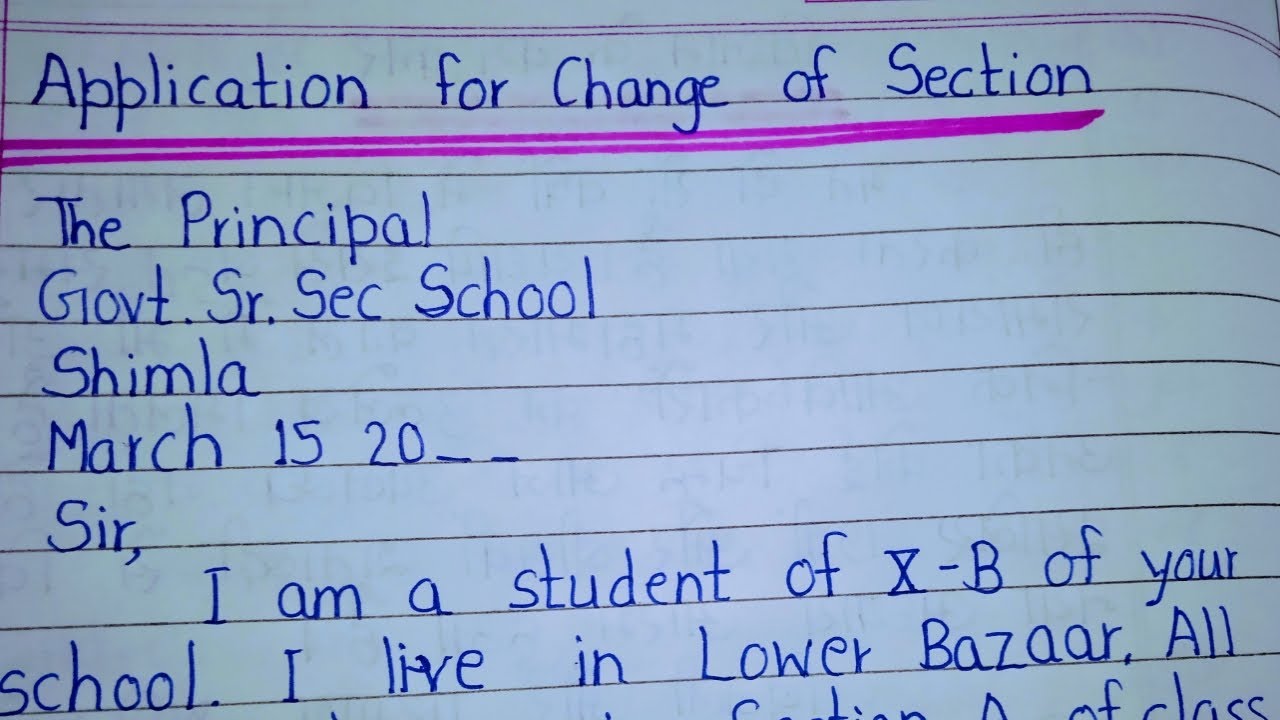 Application for Change of Section
The Principal
Govt. Sr. Sec School
Shimla
March 15 20_ _
Sir,
I am a student of X-B of your
school. I live in Lower Bazaar. All
Section A of class